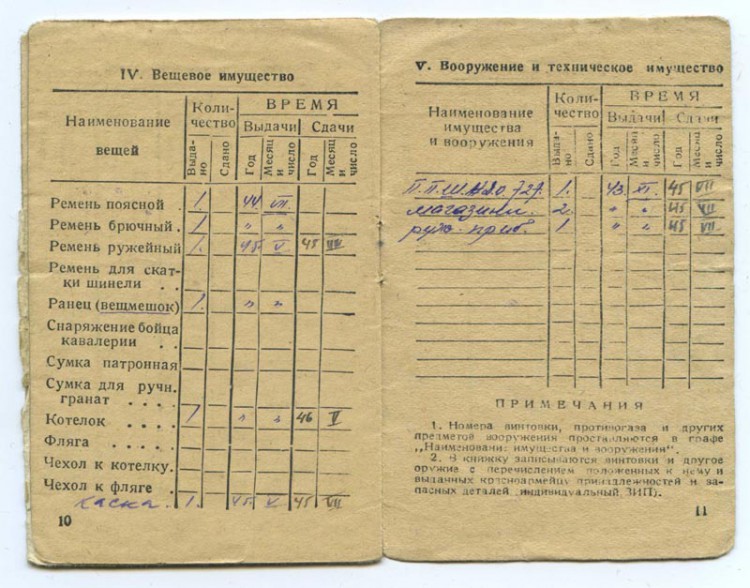 IV. Вещевое имущество
Наименование вещей
Коли-
чество
ВРЕМЯ
Выдачи
Сдачи
Выда-
но
Сдано
Год
Месяц
и
число
Год
Месяц
и
число
Ремень поясной . 1. 44 VII.
Ремень брючный . 1 " "
Ремень ружейный 1. 45 V 45 VIII
Ремень для скат-
ки шинели . .
Ранец (вещмешок) 1. " "
Снаряжение бойца
кавалерии . .
Сумка патронная
Сумка для ручн.
гранат . . . .
Котелок . . . . 1 " " 46 V
Фляга . . . .
Чехол к котелку.
Чехол к фляге .
каска. 1. 45. V. 45 VII
10
V. Вооружение и техническое имущество
Наименование
имущества
и вооружения
Коли-
чество
ВРЕМЯ
Выдачи
Сдачи
Выда-
но
Сдано
Год
Месяц
и
число
Год
Месяц
и
число
П.П.Ш. 1. 43. XI. 45 VII
магазины. 2. " " 45 VII
руж. приб. 1 " " 45 VII.
ПРИМЕЧАНИЯ
1. Номера винтовки, противогаза и других
предметов вооружения проставляются в графе
„Наименование имущества и вооружения".
2. В книжку записываются винтовки и другое
оружие с перечислением положенных к нему и
выданных красноармейцу принадлежностей и за-
пасных деталей (индивидуальный ЗИП).
11